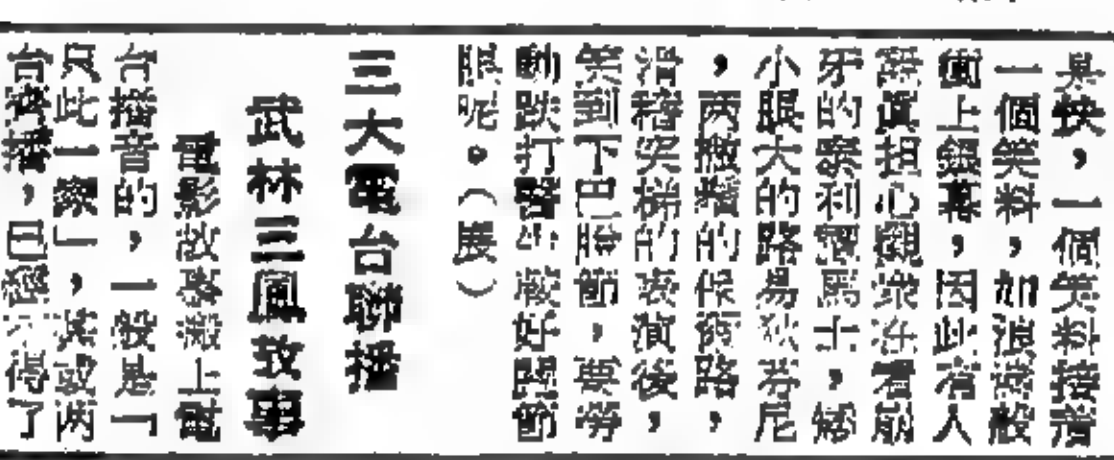 是快，一個笑料接着
一個笑料，如浪濤般
衝上銀幕，因此有人
眞担心觀衆在看崩
牙的謝利龍馬士，
小眼大的路易狄芬尼
，两撇鬚的保
滑稽笑梯的表演後，
笑到下巴脫節，要勞
動跌打醫生駁好關節
眼呢。（展）
三大電台聯播
武林三鳳故事
電影故事搬上電
台播音的，一般是「
只此一家」，其或两
台聯播，已經不得了